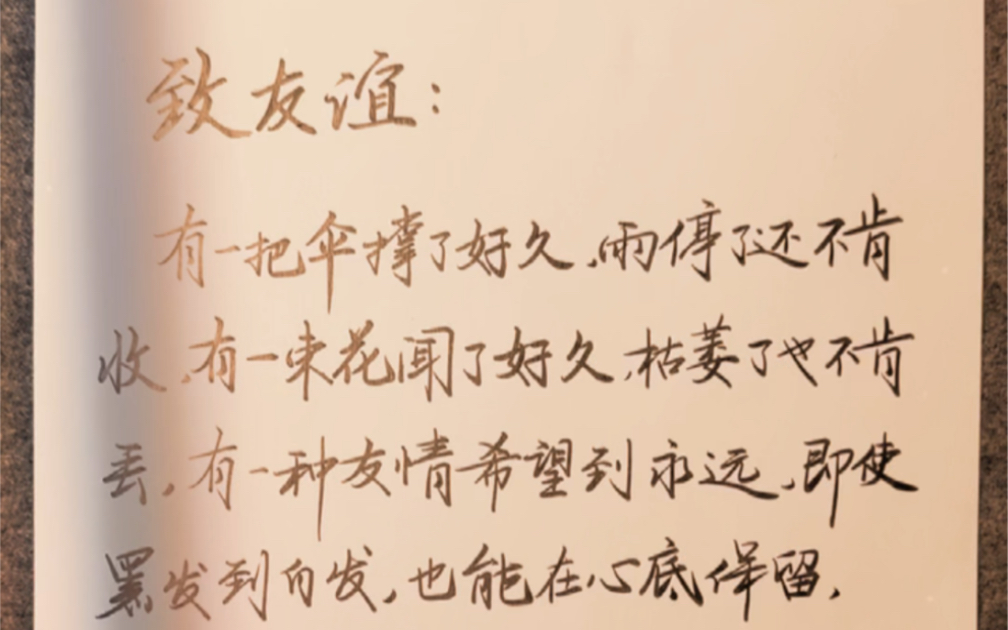 致友谊：
有一把伞撑了好久,雨停了还不肯
收,有一束花闻了好久,枯萎了也不肯
丢,有一种友情希望到永远,即使
黑发到白发,也能在心底保留,